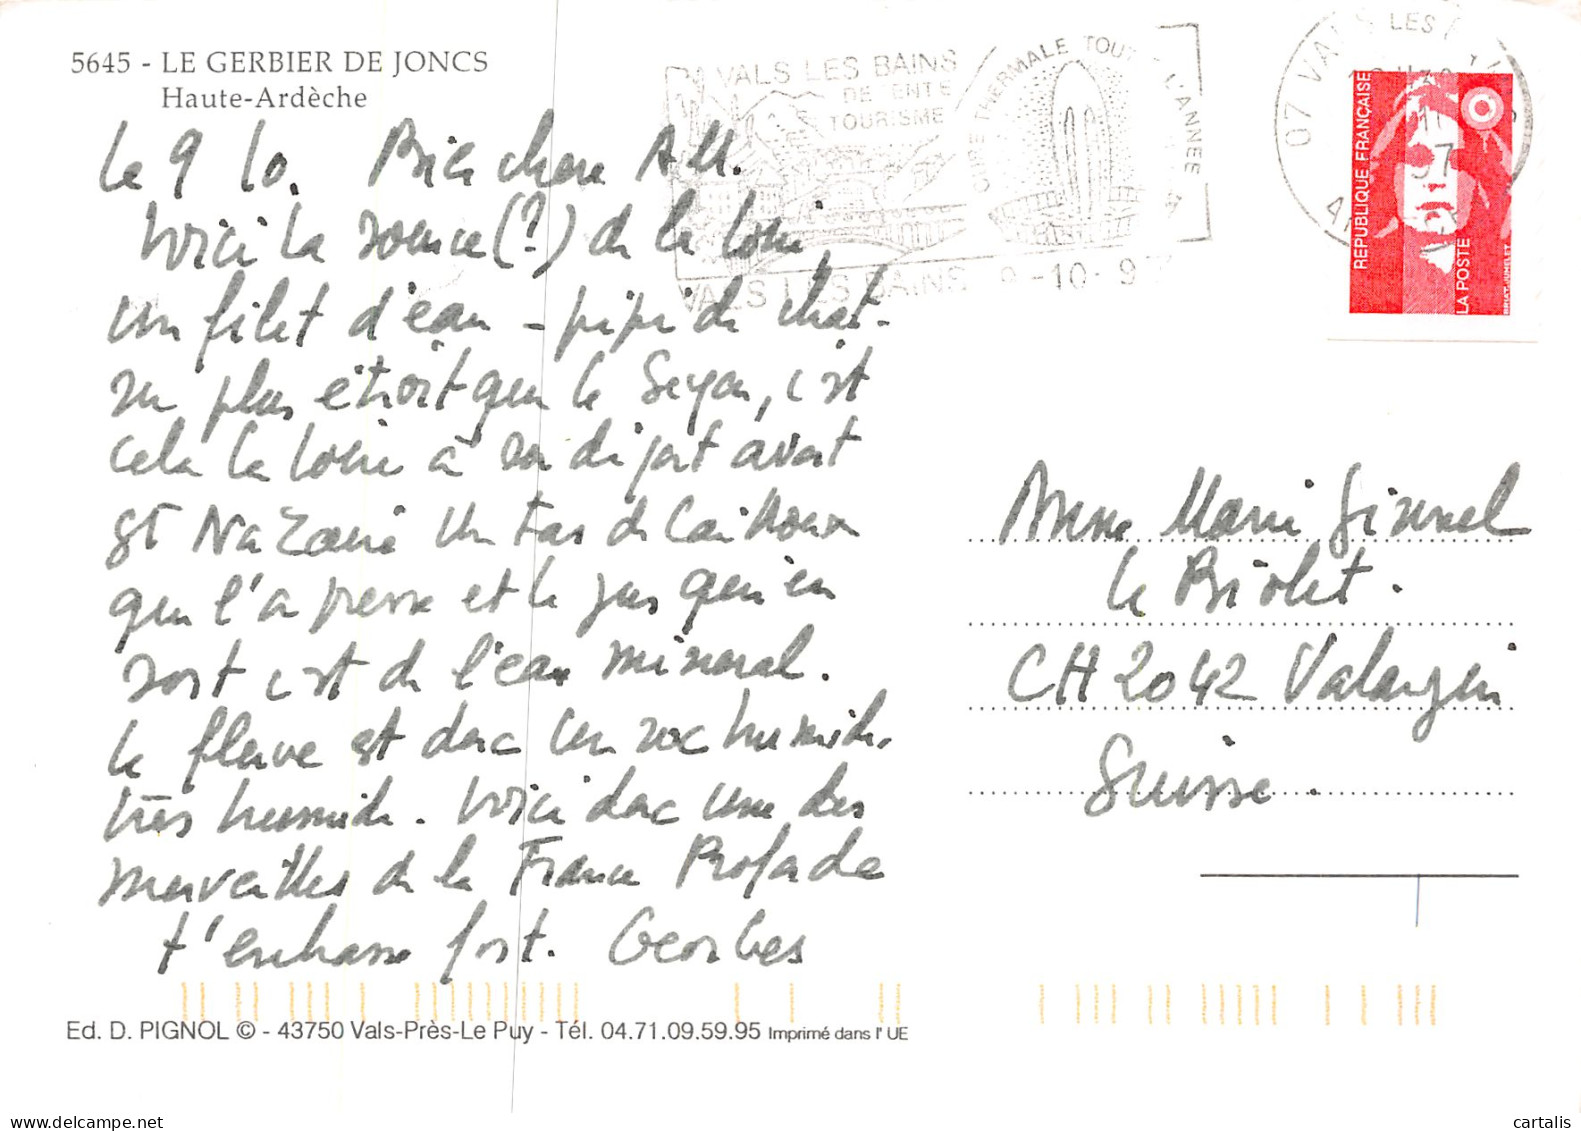 5645 - LE GERBIER DE JONCS
Haute-Ardèche
VALS LES BAINS
DETENTE
TOURISME
CURE THERMALE TOUTE L'ANNEE
VALS LES BAINS 9-10-97
07 VALS LES
REPUBLIQUE FRANÇAISE
LA POSTE
Le 9 10. Bien chère A.M.
Voici la source (?) de la Loire,
un filet d'eau - pipi de chat -
un plus étroit que le Seyon, c'est
cela la Loire à son départ avant
St Nazaire un tas de cailloux
que l'on presse et le jus qui en
sort c'est de l'eau minéral.
Le fleuve est donc un roc humide,
très humide. Voici donc une des
merveilles de la France Profonde
t'embrasse fort. Georges
Anne Marie
Le Biolet.
CH 2042 Valangin
Suisse.
Ed. D. PIGNOL © - 43750 Vals-Près-Le Puy - Tél. 04.71.09.59.95 Imprimé dans l'UE
cartalis